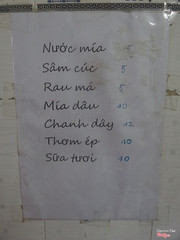 Nước mía 5
Sâm cúc 5
Rau má 5
Mía dâu 10
Chanh dây 12
Thơm ép 10
Sữa tươi 10